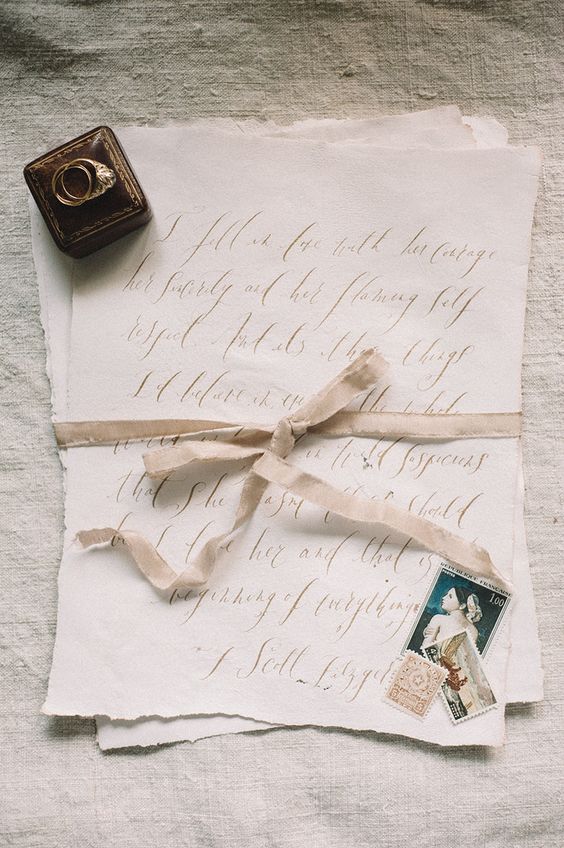 I fell in love with her courage
her sincerity and her flaming self
respect. And its these things
I'd believe in the whole
in wild suspicions
that she wasnt should
love her and that is
beginning of everything
F Scott
REPUBLIQUE FRANÇAISE
1,00